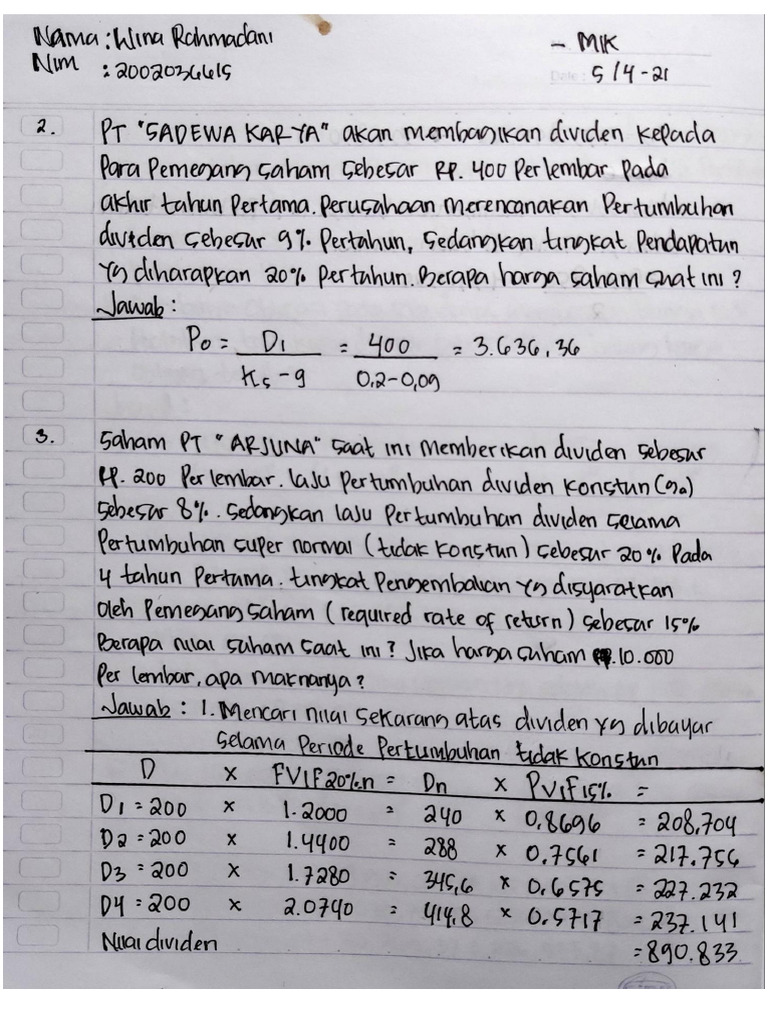 Nama : Wina Rahmadani
- MK
Nim : 2002036615
Date : 5/4-21
2. PT "SADEWA KARYA" akan membagikan dividen kepada
Para Pemegang saham sebesar RP. 400 Per lembar Pada
akhir tahun Pertama. Perusahaan merencanakan Pertumbuhan
dividen sebesar 9% Pertahun, sedangkan tingkat Pendapatan
yg diharapkan 20% Pertahun. Berapa harga saham saat ini ?
Jawab :
Po = D1 / Ks - g = 400 / 0,2-0,09 = 3.636,36
3. Saham PT "ARJUNA" saat ini memberikan dividen sebesar
RP. 200 Per lembar. laju Pertumbuhan dividen konstan (ga)
sebesar 8%. sedangkan laju Pertumbuhan dividen selama
Pertumbuhan super normal (tidak konstan) sebesar 20% Pada
4 tahun Pertama. tingkat Pengembalian yg disyaratkan
oleh Pemegang saham (required rate of return) sebesar 15%
Berapa nilai saham saat ini ? Jika harga saham RP. 10.000
Per lembar, apa maknanya ?
Jawab : 1. Mencari nilai sekarang atas dividen yg dibayar
selama Periode Pertumbuhan tidak konstan
D x FVIF20%.n = Dn x PVIF15%. =
D1 = 200 x 1.2000 = 240 x 0,8696 = 208,704
D2 = 200 x 1.4400 = 288 x 0.7561 = 217.756
D3 = 200 x 1.7280 = 345,6 x 0.6575 = 227.232
D4 = 200 x 2.0740 = 414.8 x 0.5717 = 237.141
Nilai dividen = 890.833